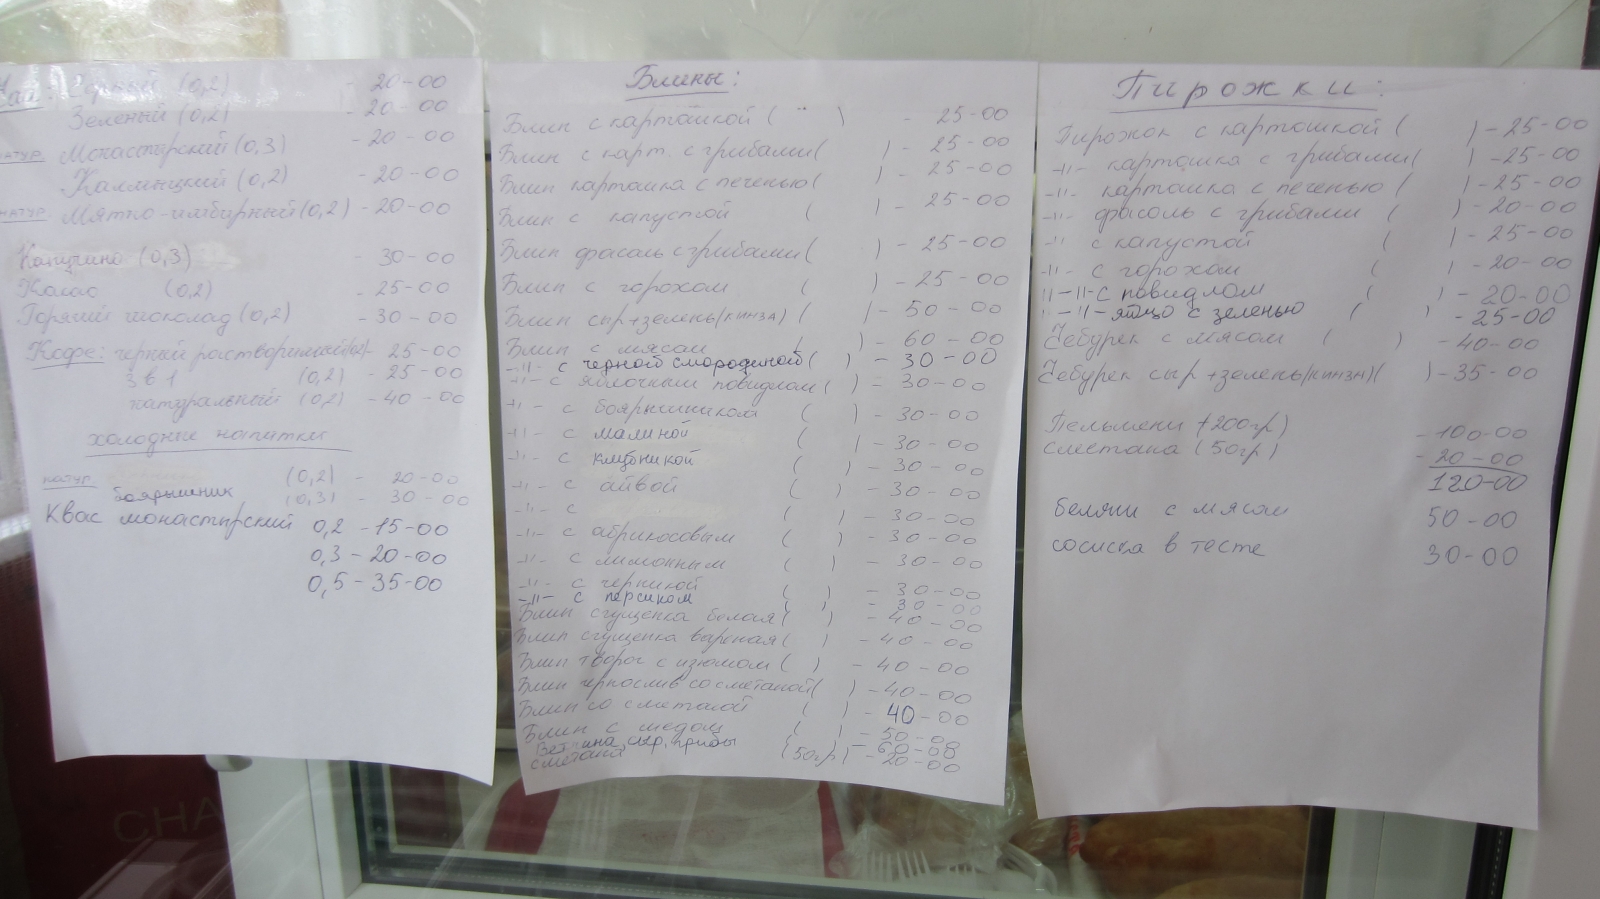 Чай: Черный (0,2) - 20-00
Зеленый (0,2) - 20-00
натур. Монастырский (0,3) - 20-00
Калмыцкий (0,2) - 20-00
натур. Мятно-имбирный (0,2) - 20-00
Капучино (0,3) - 30-00
Какао (0,2) - 25-00
Горячий шоколад (0,2) - 30-00
Кофе: черный растворимый - 25-00
3 в 1 (0,2) - 25-00
натуральный (0,2) - 40-00
холодные напитки
натур. (0,2) - 20-00
боярышник (0,3) - 30-00
Квас монастырский 0,2 - 15-00
0,3 - 20-00
0,5 - 35-00
Блины:
Блин с картошкой ( ) - 25-00
Блин с карт. с грибами ( ) - 25-00
Блин картошка с печенью ( ) - 25-00
Блин с капустой ( ) - 25-00
Блин фасоль с грибами ( ) - 25-00
Блин с горохом ( ) - 25-00
Блин сыр+зелень/кинза) ( ) - 50-00
Блин с мясом ( ) - 60-00
-"- с черной смородиной ( ) - 30-00
-"- с яблочным повидлом ( ) - 30-00
-"- с боярышником ( ) - 30-00
-"- с малиной ( ) - 30-00
-"- с клубникой ( ) - 30-00
-"- с айвой ( ) - 30-00
-"- с ( ) - 30-00
-"- с абрикосовым ( ) - 30-00
-"- с лимонным ( ) - 30-00
-"- с черникой ( ) - 30-00
-"- с персиком ( ) - 30-00
Блин сгущенка белая ( ) - 40-00
Блин сгущенка вареная ( ) - 40-00
Блин творог с изюмом ( ) - 40-00
Блин чернослив со сметаной ( ) - 40-00
Блин со сметаной ( ) - 40-00
Блин с медом ( ) - 50-00
Ветчина, сыр, грибы - 60-00
сметана (50гр) - 20-00
Пирожки:
Пирожок с картошкой ( ) - 25-00
-"- картошка с грибами ( ) - 25-00
-"- картошка с печенью ( ) - 25-00
-"- фасоль с грибами ( ) - 20-00
-"- с капустой ( ) - 25-00
-"- с горохом ( ) - 20-00
-"-"- с повидлом ( ) - 20-00
-"- яйцо с зеленью ( ) - 25-00
Чебурек с мясом ( ) - 40-00
Чебурек сыр+зелень/кинза) ( ) - 35-00
Пельмени (200гр) - 100-00
сметана (50гр) - 20-00
120-00
беляши с мясом 50-00
сосиска в тесте 30-00
СНА